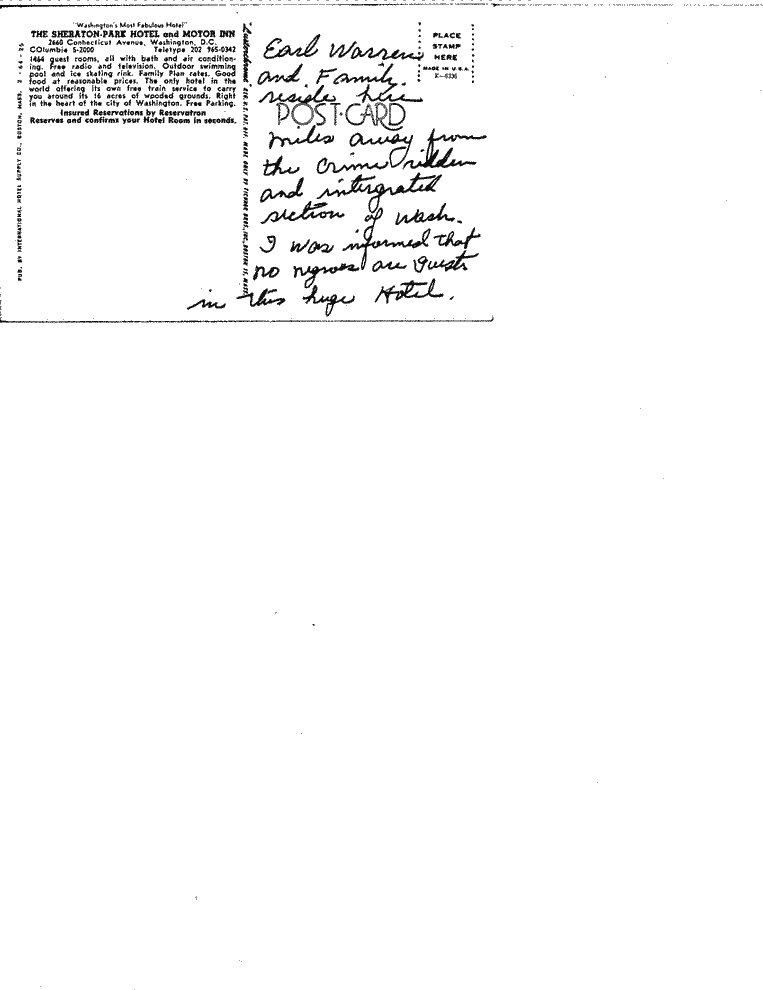 "Washington's Most Fabulous Hotel"
THE SHERATON-PARK HOTEL and MOTOR INN
2660 Connecticut Avenue, Washington, D.C.
COlumbia 5-2000 Teletype 202 965-0342
1464 guest rooms, all with bath and air condition-
ing. Free radio and television. Outdoor swimming
pool and ice skating rink. Family Plan rates. Good
food at reasonable prices. The only hotel in the
world offering its own free train service to carry
you around its 16 acres of wooded grounds. Right
in the heart of the city of Washington. Free Parking.
Insured Reservations by Reservatron
Reserves and confirms your Hotel Room in seconds.
PUB. BY INTERNATIONAL HOTEL SUPPLY CO., BOSTON, MASS. 2 - 64 - 25
REG. U.S. PAT. OFF. MADE ONLY BY TICHNOR BROS., INC., BOSTON 15, MASS.
PLACE
STAMP
HERE
MADE IN U.S.A.
POST CARD
Earl Warren
and Family.
reside here
miles away from
the crime ridden
and intergrated
section of Wash.
I was informed that
no negroes are guests
in this huge Hotel.